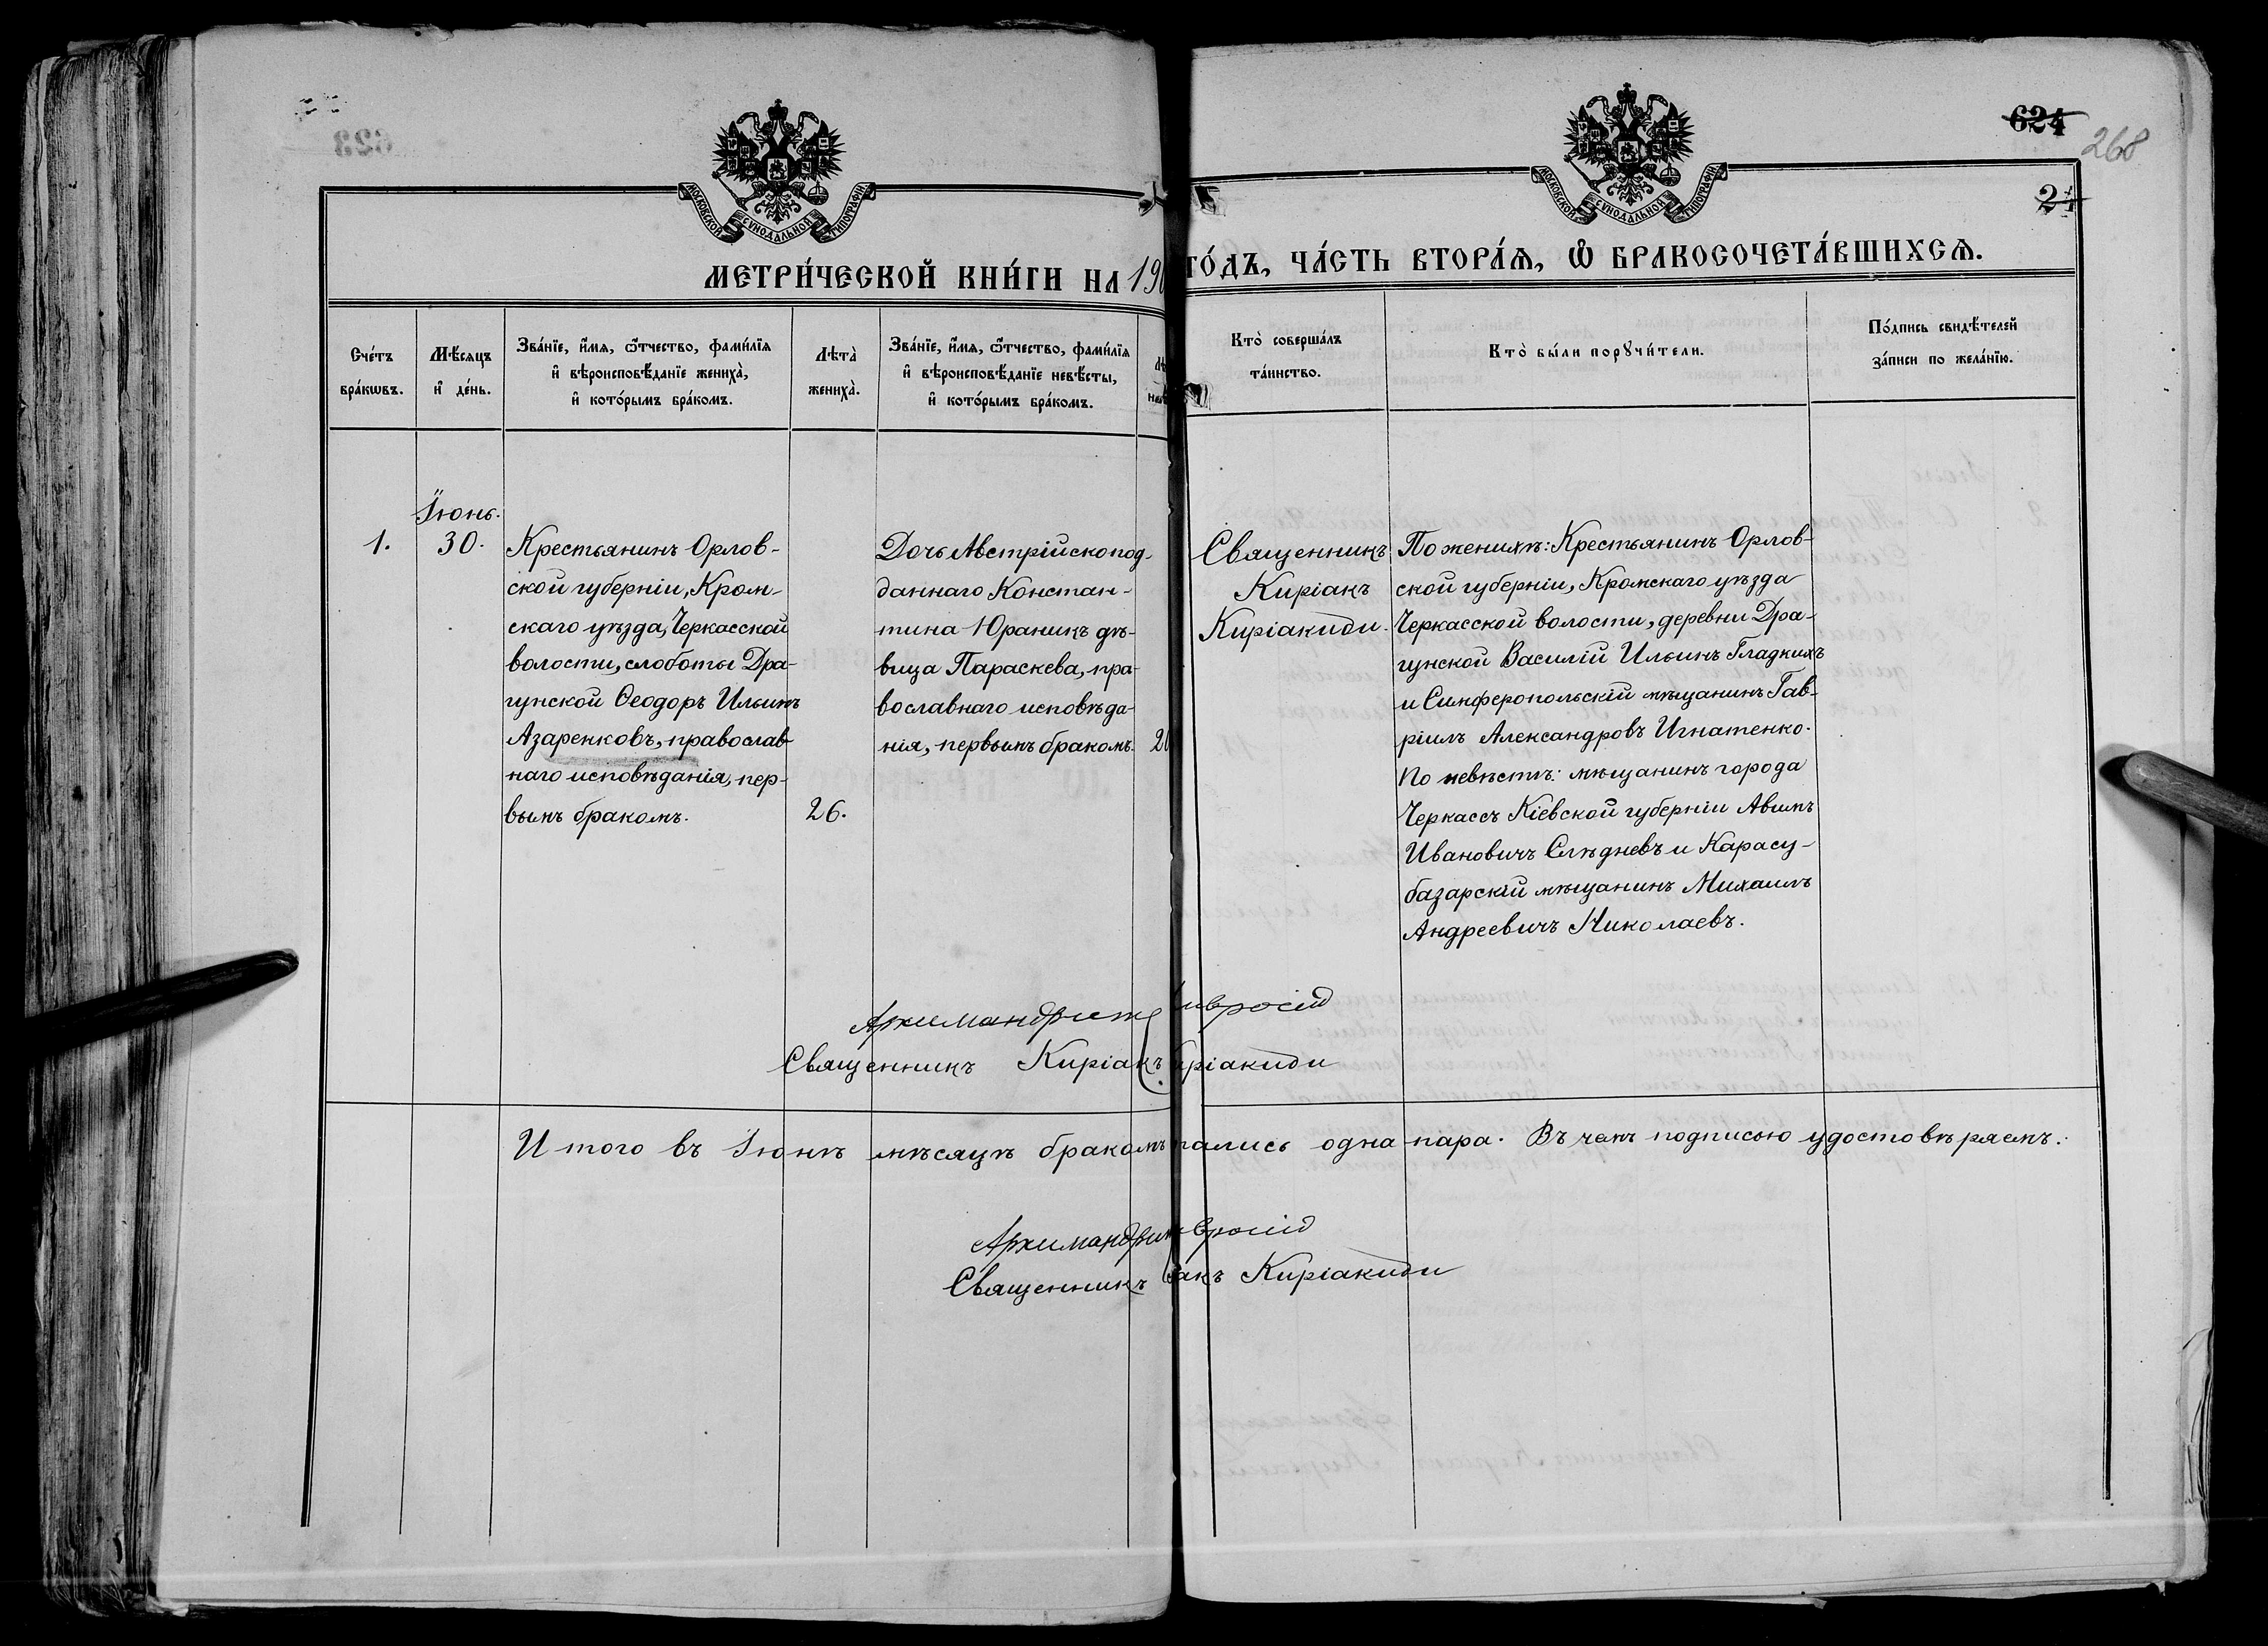 624
268
24
МОСКОВСКОЙ СУНОДАЛЬНОЙ ТИПОГРАФІИ
МОСКОВСКОЙ СУНОДАЛЬНОЙ ТИПОГРАФІИ
МЕТРИ́ЧЕСКОЙ КНИ́ГИ НА 190
ГО́ДЪ, ЧА́СТЬ ВТОРА́Я, Ѡ БРАКОСОЧЕТА́ВШИХСЯ.
Сче́тъ
бра́кѡвъ.
Мѣ́сяцъ
и҆ де́нь.
Зва́нїе, и҆́мя, ѻ҆́тчество, фами́лїя
и҆ вѣроисповѣ́данїе жениха̀,
и҆ кото́рымъ бра́комъ.
Лѣта̀
жениха̀.
Зва́нїе, и҆́мя, ѻ҆́тчество, фами́лїя
и҆ вѣроисповѣ́данїе невѣ́сты,
и҆ кото́рымъ бра́комъ.
Кто̀ соверша́лъ
та́инство.
Кто̀ бы́ли порꙋчи́тели.
По́дпись свидѣ́телей
за́писи по жела́нїю.
Іюнь.
1.
30.
Крестьянинъ Орлов-
ской губерніи, Кром-
скаго уѣзда, Черкасской
волости, слоботы Дра-
гунской Ѳеодоръ Ильинъ
Азаренковъ, православ-
наго исповѣданія, пер-
вымъ бракомъ.
26.
Дочь Австрійскопод-
даннаго Констан-
тина Юраникъ дѣ-
вица Параскева, пра-
вославнаго исповѣда-
нія, первымъ бракомъ.
20
Священникъ
Киріакъ
Киріакиди.
По женихѣ: Крестьянинъ Орлов-
ской губерніи, Кромскаго уѣзда
Черкасской волости, деревни Дра-
гунской Василій Ильинъ Гладкихъ
и Симферопольскій мѣщанинъ Гав-
ріилъ Александровъ Игнатенко.
По невѣстѣ: мѣщанинъ города
Черкассъ Кіевской губерніи Авимъ
Ивановичъ Слѣдневъ и Карасу-
базарскій мѣщанинъ Михаилъ
Андреевичъ Николаевъ.
Архимандритъ мвросій
Священникъ Киріакъ иріакиди
Итого въ Іюнѣ мѣсяцѣ бракомъ тались одна пара. Въ чемъ подписью удостовѣряемъ:
Архимандрит вросій
Священникъ іакъ Киріакиди